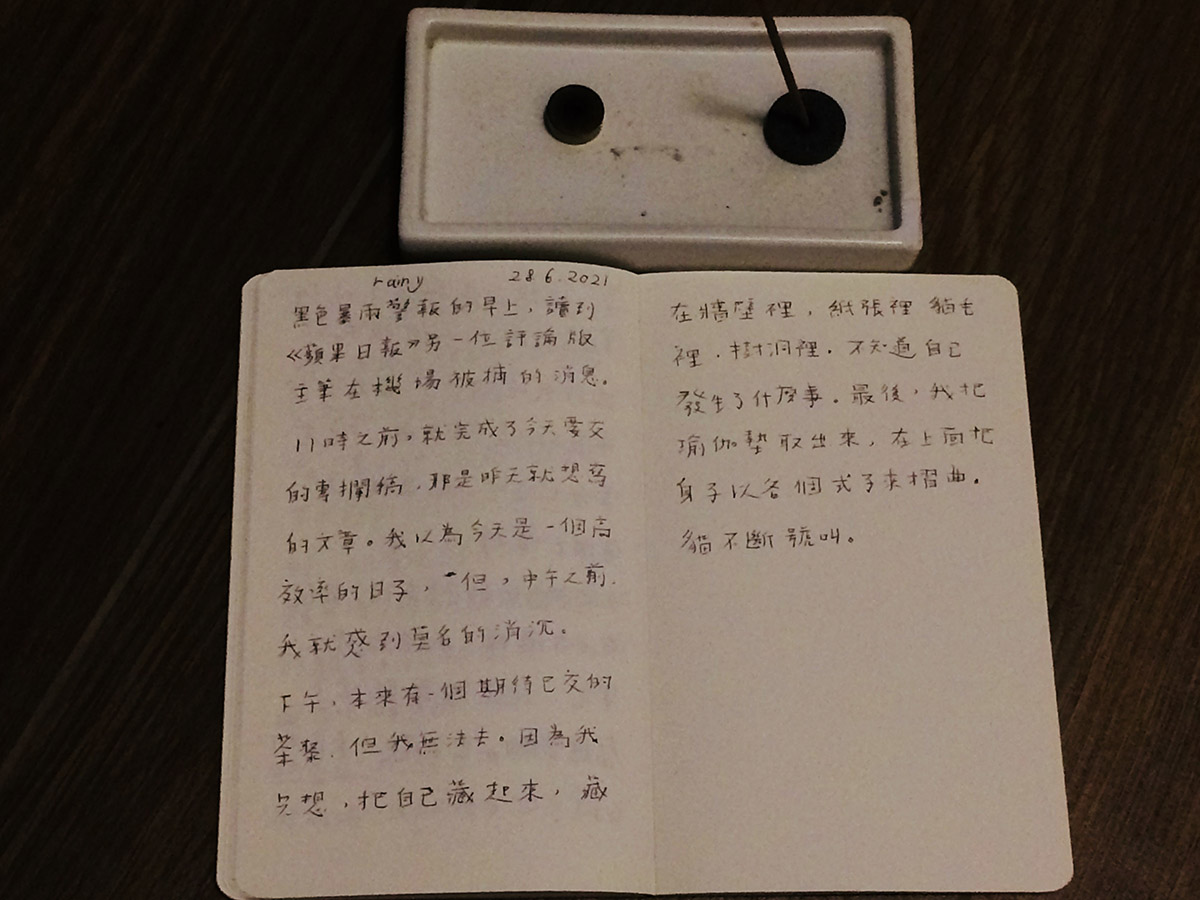 rainy 28.6.2021
黑色暴雨警報的早上，讀到
《蘋果日報》另一位評論版
主筆在機場被捕的消息。
11時之前，就完成了今天要交
的專欄稿，那是昨天就想寫
的文章。我以為今天是一個高
效率的日子，但，中午之前，
我就感到莫名的消沉。
下午，本來有一個期待已久的
茶聚，但我無法去。因為我
只想，把自己藏起來，藏
在牆壁裡，紙張裡貓毛
裡，樹洞裡。不知道自己
發生了什麼事。最後，我把
瑜伽墊取出來，在上面把
身子以各個式子來摺曲。
貓不斷號叫。